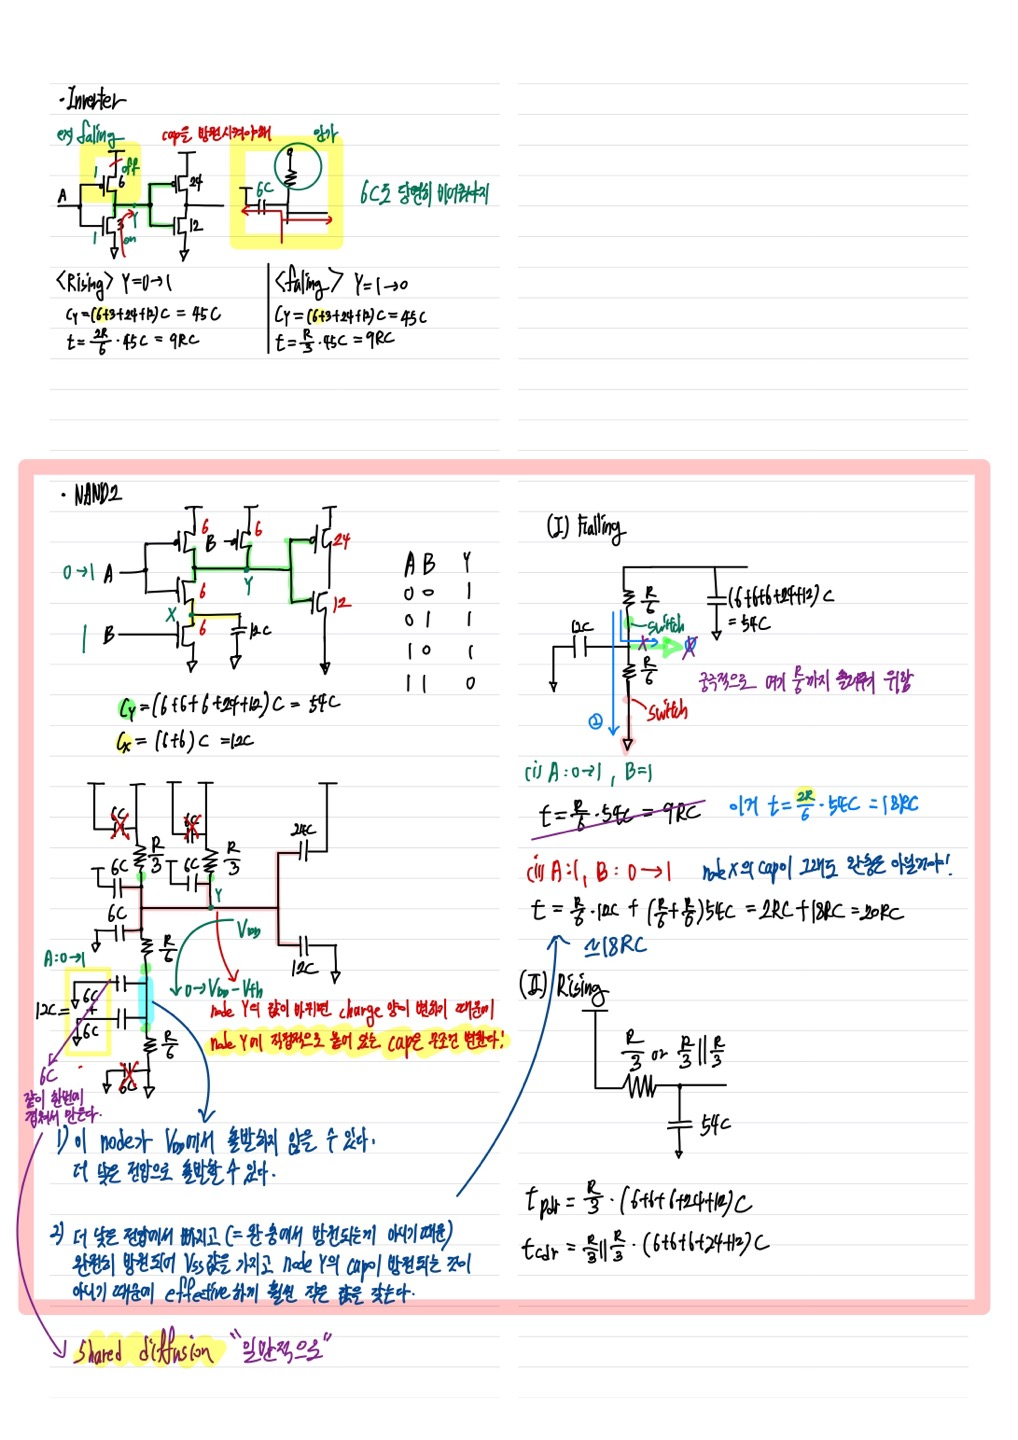 · Inverter
ex) faling
cap을 방전시켜야돼
1
off
6
A
3
1
on
Y
24
12
6C
6C도 당연히 이어줘야지
<Rising> Y=0→1
Cy=(6+3+24+12)C = 45C
t= 2R/6 · 45C = 9RC
<faling> Y=1→0
Cy=(6+3+24+12)C=45C
t= R/3 · 45C = 9RC
· NAND2
6
B
6
24
0→1 A
Y
6
12
X
1 B
6
12C
A B Y
0 0 1
0 1 1
1 0 1
1 1 0
Cy=(6+6+6+24+12)C = 54C
Cx=(6+6)C =12C
6C
6C
24C
R/3
R/3
6C
6C
6C
Y
R/6
VDD
A:0→1
0→VDD-Vth
12C
12C=
6C
+
6C
R/6
6C
node Y의 값이 바뀌면 charge 양이 변하기 때문에
node Y에 직접적으로 붙어 있는 cap은 무조건 변한다!
6C
같이 한번에
겹쳐서 만든다.
1) 이 node가 VDD에서 출발하지 않을 수 있다.
더 낮은 전압으로 출발할 수 있다.
2) 더 낮은 전압에서 빠지고 (= 완충에서 방전되는게 아니기 때문)
완전히 방전되어 Vss 값을 가지고 node Y의 cap이 방전되는 것이
아니기 때문에 effective하게 훨씬 작은 값을 갖는다.
shared diffusion "일반적으로"
(I) Falling
R/6
(6+6+6+24+12)C
= 54C
switch
12C
X
R/6
switch
②
궁극적으로 여기 R/6까지 흘려주기 위함
(i) A:0→1, B=1
t= R/6 · 54C = 9RC
이거 t= 2R/6 · 54C = 18RC
(ii) A:1, B: 0→1
node X의 cap이 그래도 완충은 아닐거야!
t= R/6 · 12C + (R/6+R/6)54C = 2RC+18RC=20RC
≃18RC
(II) Rising
R/3 or R/3||R/3
54C
tpdr = R/3 · (6+6+6+24+12)C
tcdr = R/3||R/3 · (6+6+6+24+12)C